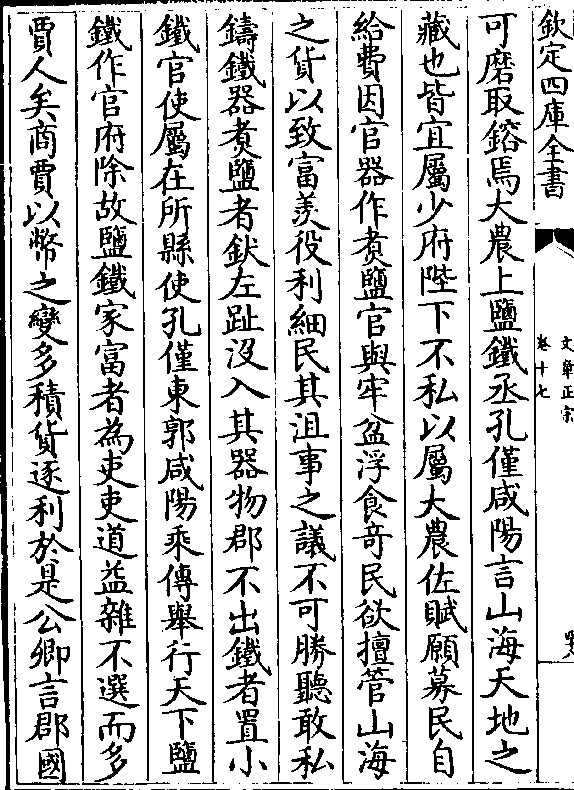 欽定四庫全書
文章正宗
卷十七
可磨取鎔焉大農上鹽鐵丞孔僅咸陽言山海天地之
藏也皆宜屬少府陛下不私以屬大農佐賦願募民自
給費因官器作煑鹽官與牢盆浮食奇民欲擅管山海
之貨以致富羨役利細民其沮事之議不可勝聽敢私
鑄鐵器煑鹽者釱左趾沒入其器物郡不出鐵者置小
鐵官使屬在所縣使孔僅東郭咸陽乘傳舉行天下鹽
鐵作官府除故鹽鐵家富者為吏吏道益雜不選而多
賈人矣商賈以幣之變多積貨逐利於是公卿言郡國